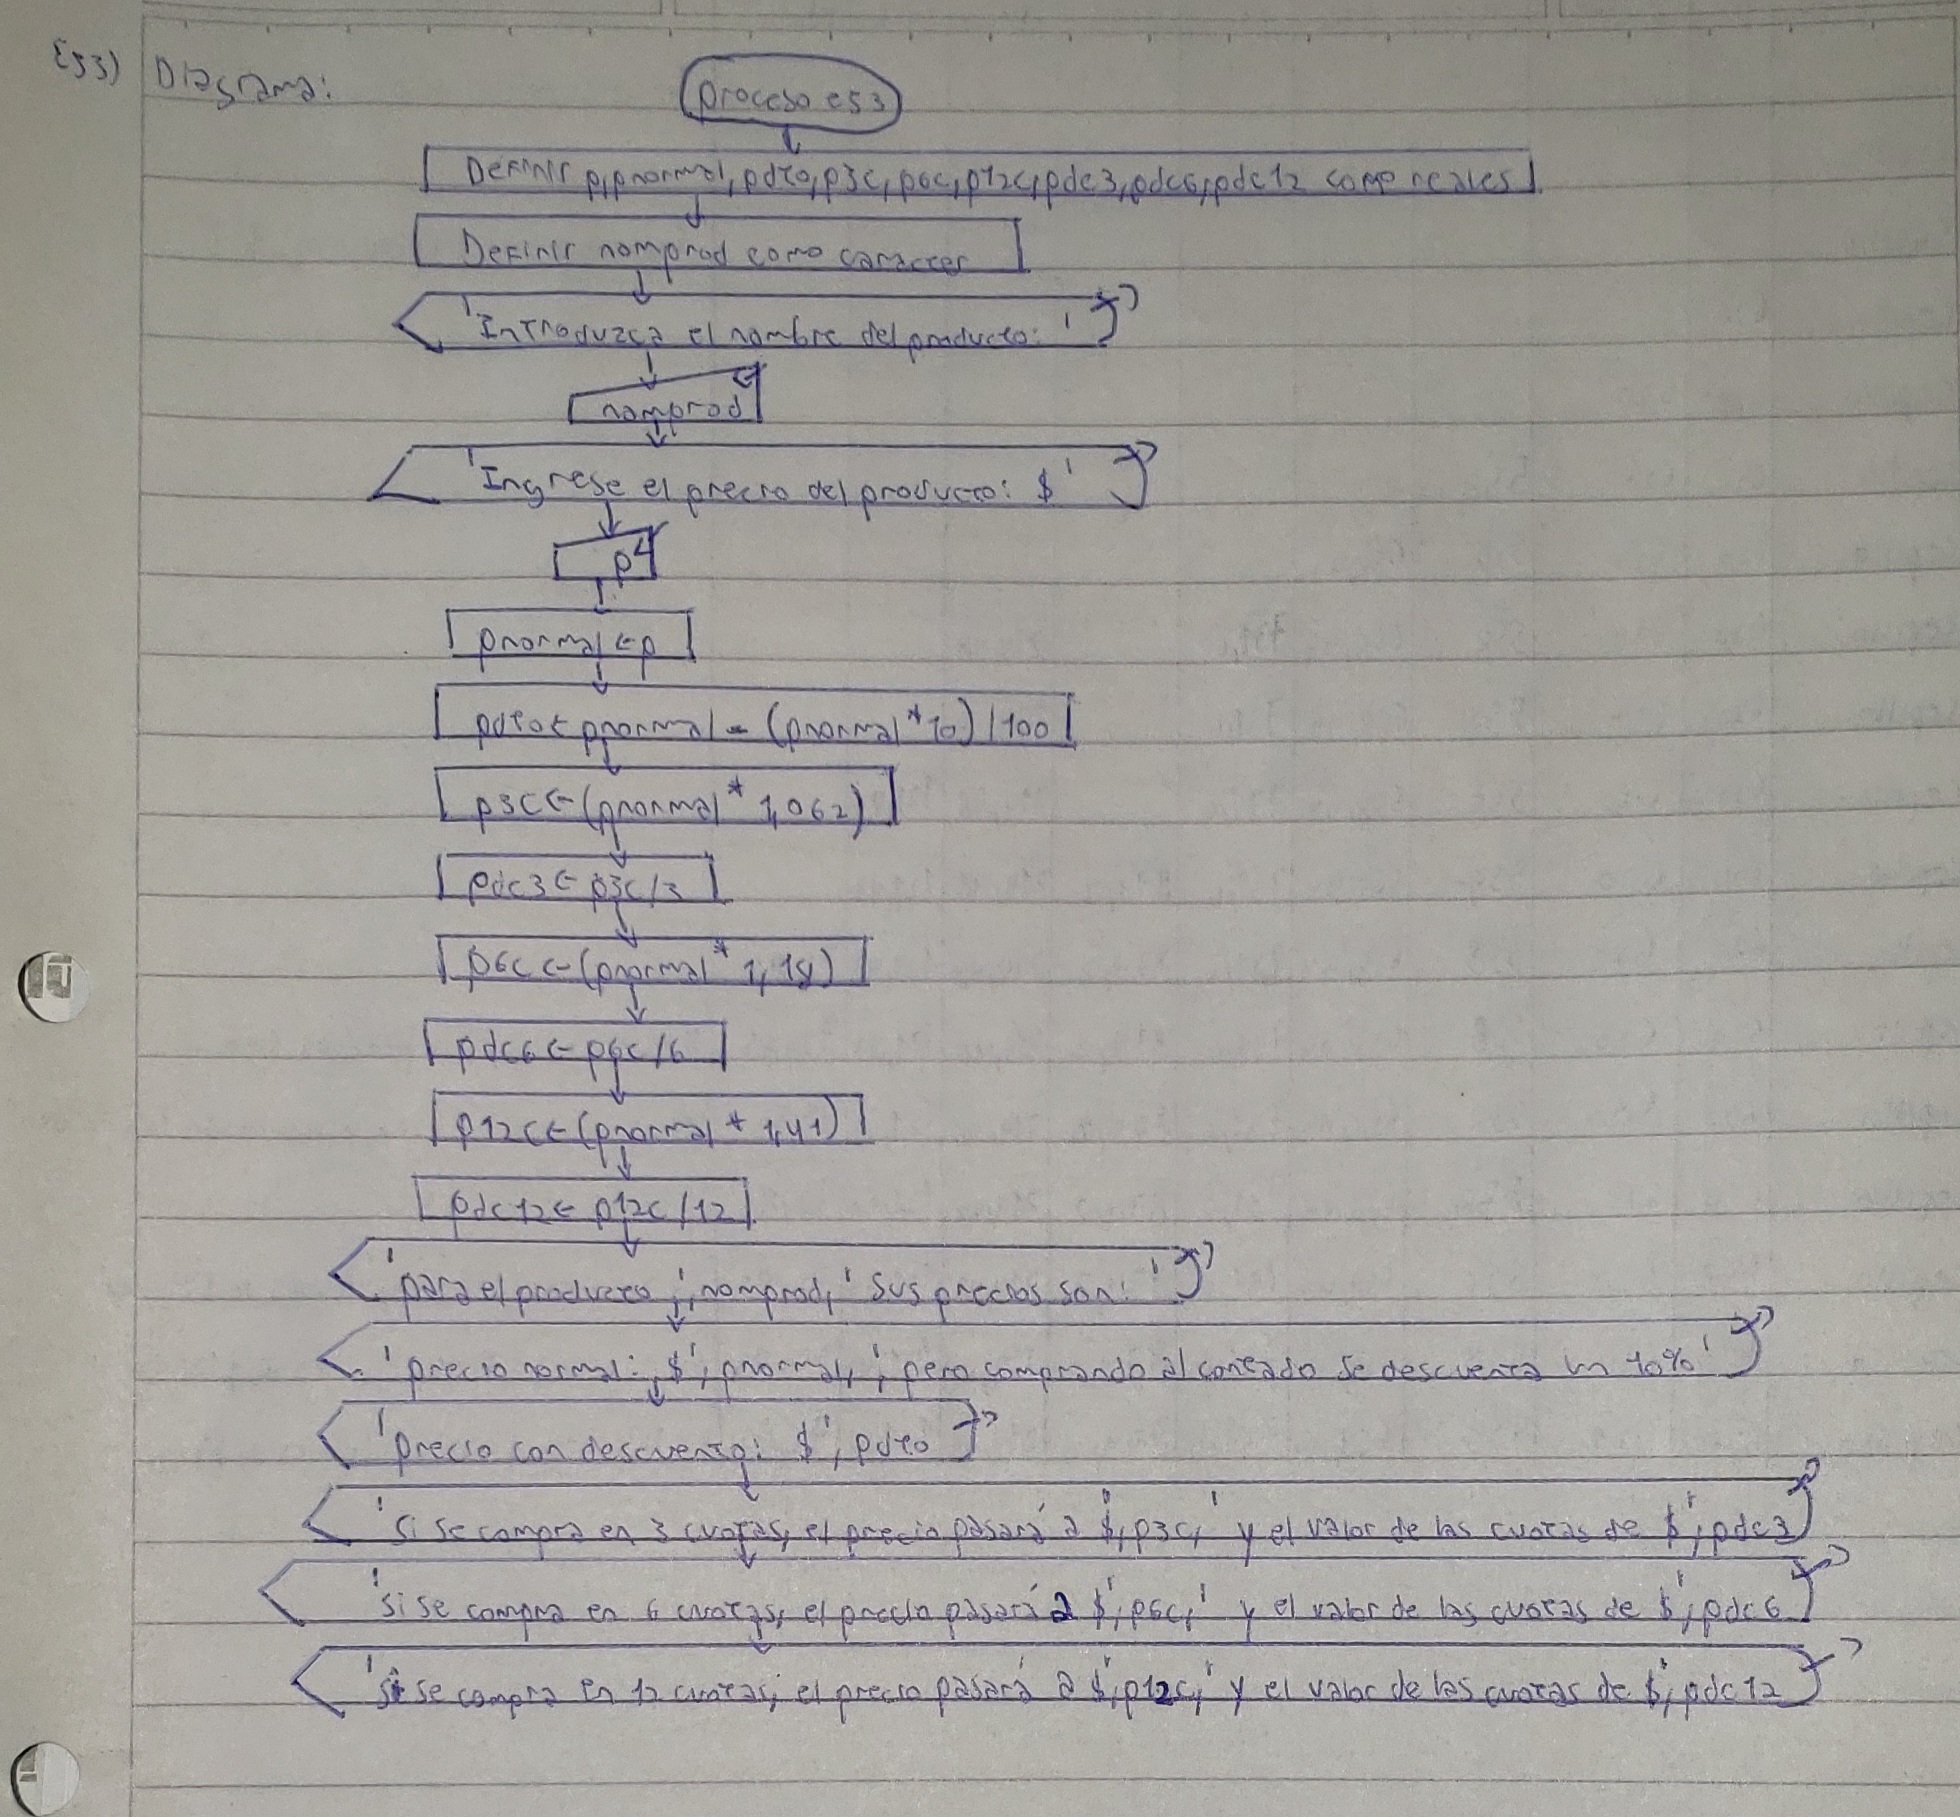 Ej3) Diagrama:
proceso ej3
Definir p,pnormal,pdto,p3c,p6c,p12c,pdc3,pdc6,pdc12 como reales
Definir nomprod como caracter
'Introduzca el nombre del producto: '
nomprod
'Ingrese el precio del producto: $'
p
pnormal ← p
pdto ← pnormal - (pnormal * 10) / 100
p3c ← (pnormal * 1,062)
pdc3 ← p3c/3
p6c ← (pnormal * 1,18)
pdc6 ← p6c/6
p12c ← (pnormal * 1,41)
pdc12 ← p12c/12
'para el producto ', nomprod, ' sus precios son: '
'precio normal: $', pnormal, ', pero comprando al contado se descuenta un 10%'
'precio con descuento: $', pdto
'si se compra en 3 cuotas, el precio pasará a $', p3c, ' y el valor de las cuotas de $', pdc3
'si se compra en 6 cuotas, el precio pasará a $', p6c, ' y el valor de las cuotas de $', pdc6
'si se compra en 12 cuotas, el precio pasará a $', p12c, ' y el valor de las cuotas de $', pdc12